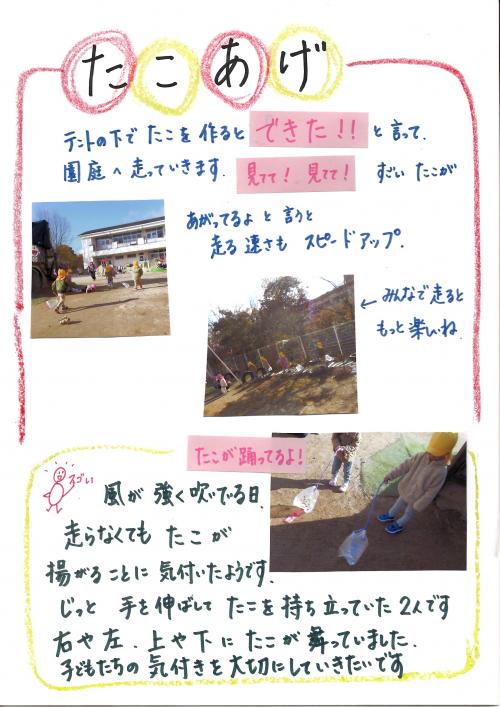 たこあげ
テントの下で たこを 作ると できた!! と言って、
園庭へ走っていきます。 見てて! 見てて! すごい たこが
あがってるよ と 言うと
走る 速さも スピードアップ.
← みんなで走ると
もっと 楽しいね.
たこが踊ってるよ!
すごい
風が 強く吹いでいる日、
走らなくても たこが
揚がる ことに 気付いたようです.
じっと 手を伸ばして たこを持ち立っていた 2人です
右や左、上や下に たこが 舞っていました.
子どもたちの 気付きを大切にしていきたいです